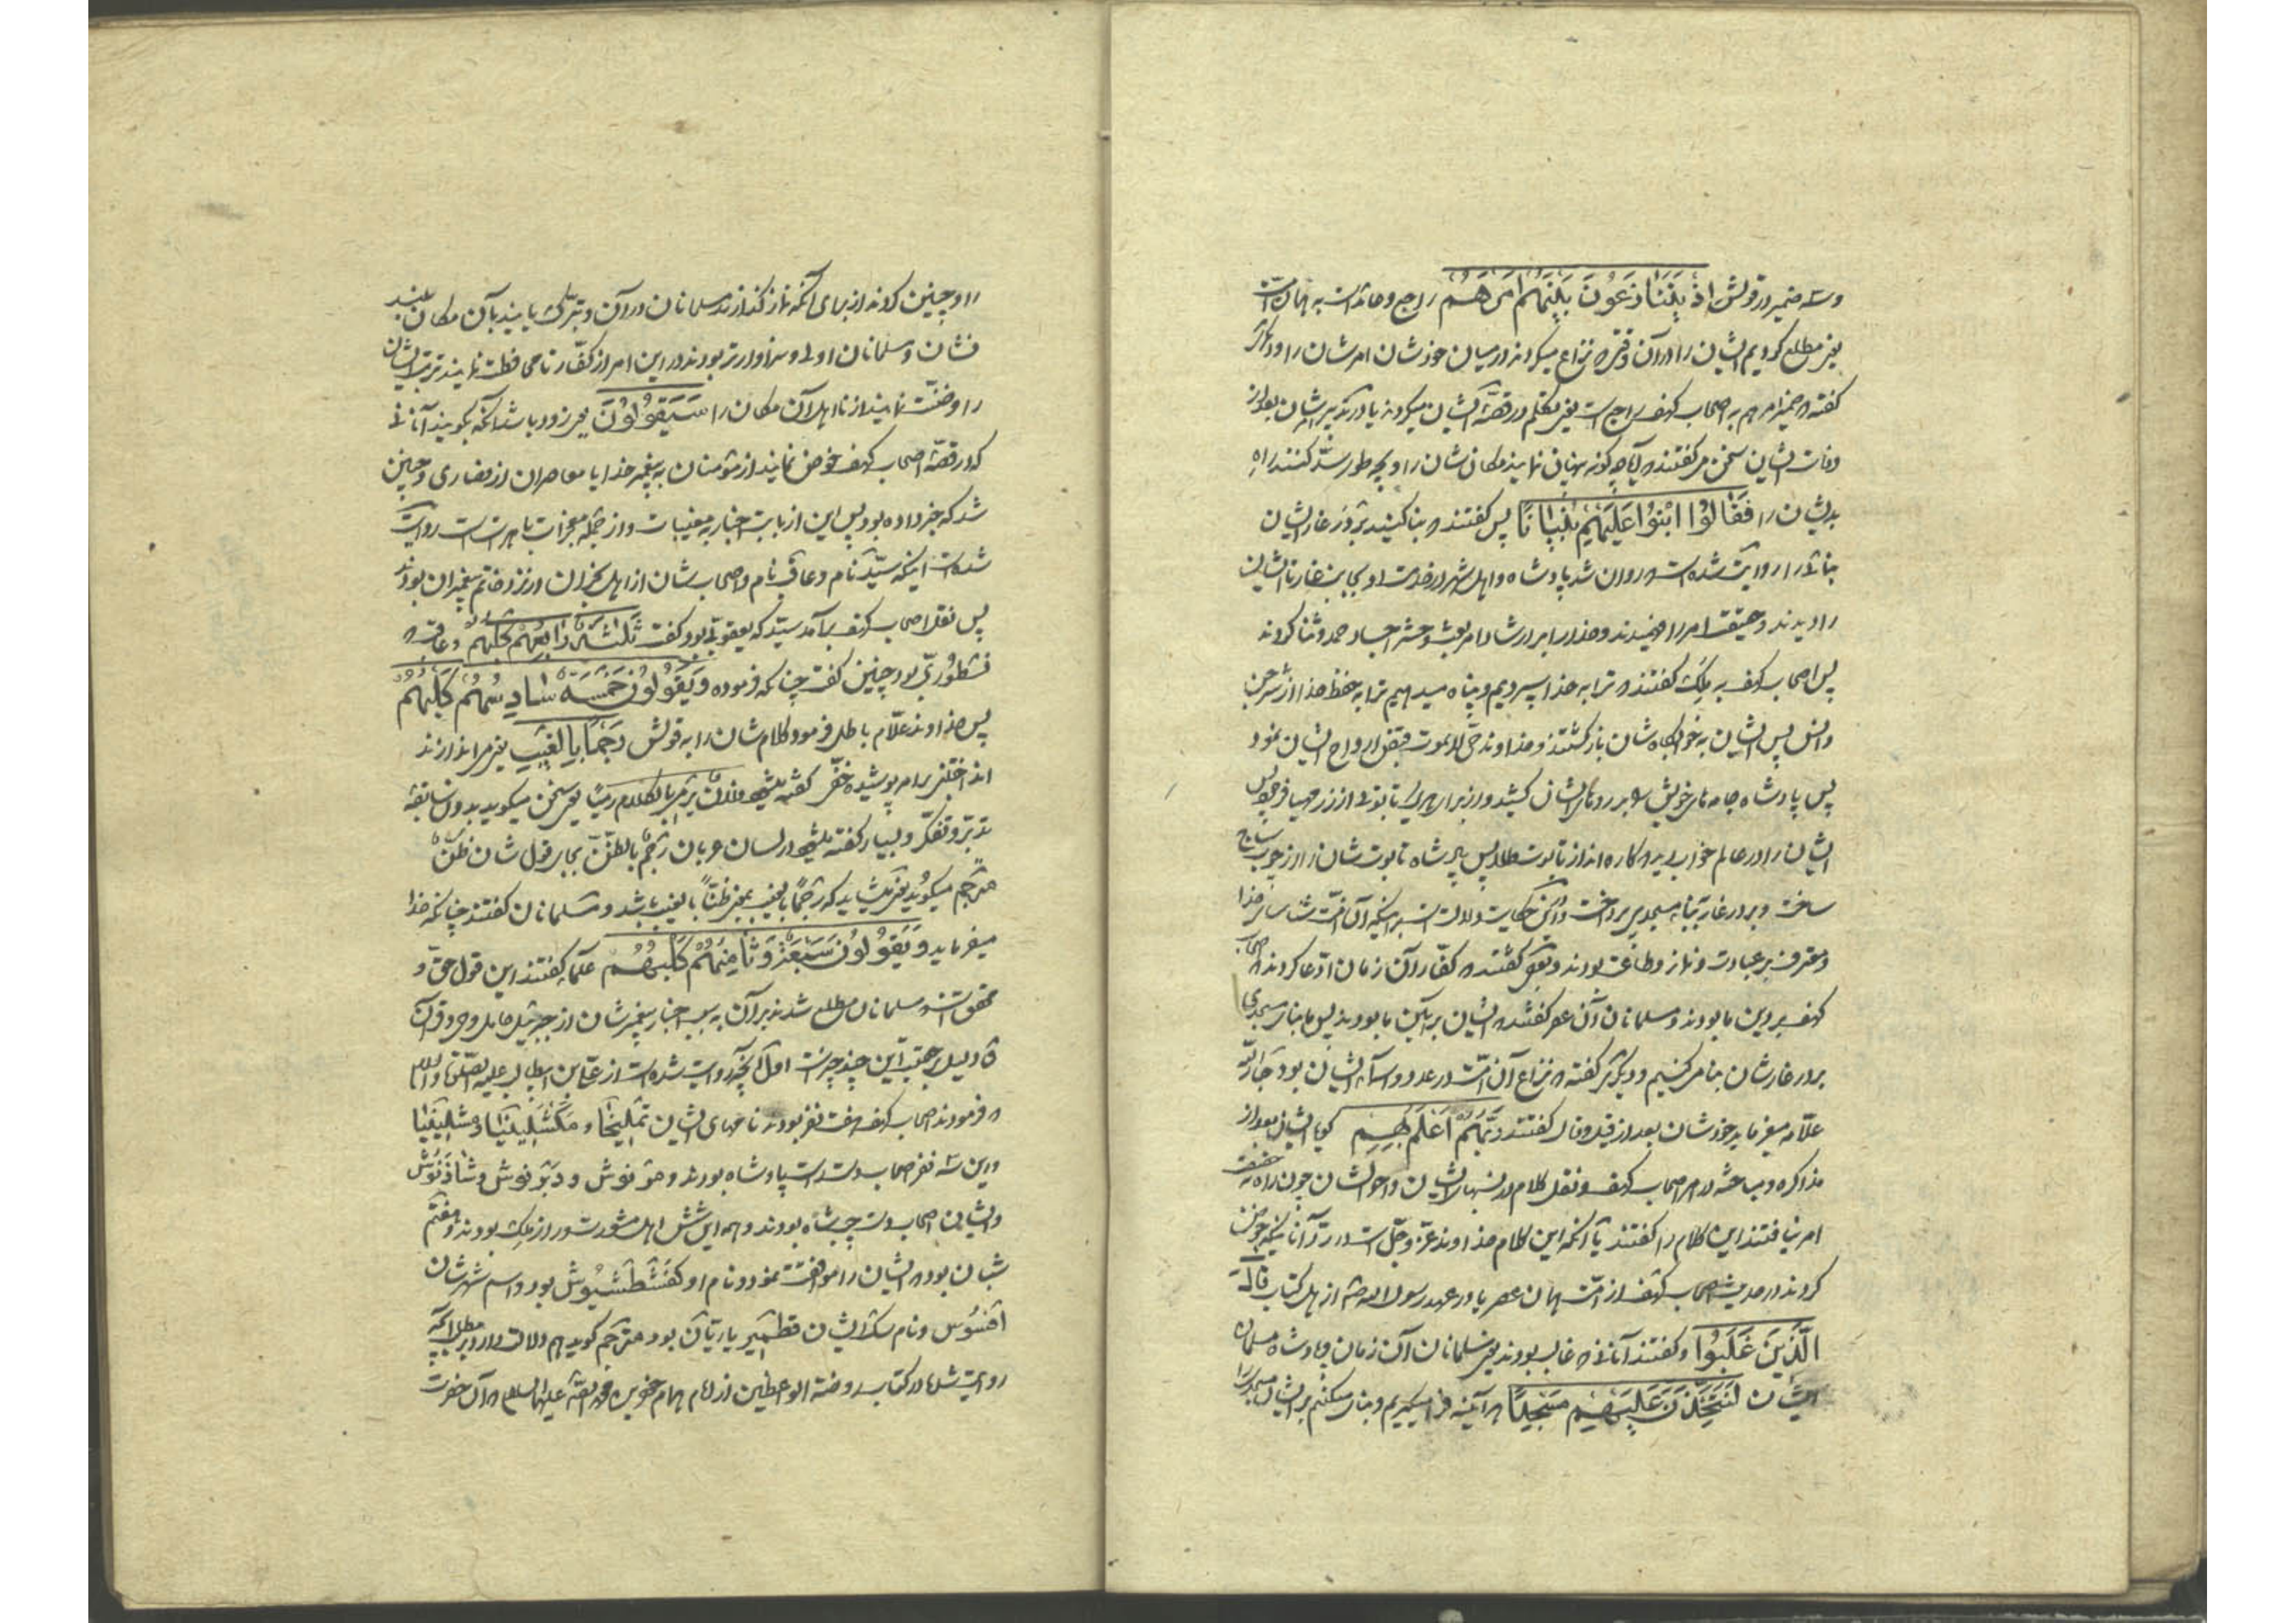 و سه ضمیر در قولش اِذْ یَتَنَازَعُونَ بَیْنَهُمْ اَمْرَهُمْ راجع و عاید است به همان امت
یعنی مطلع کردیم ایشان را در آن وقتی که نزاع میکردند در میان خودشان امرشان را و دیگر
گفته که ضمیر امرهم به اصحاب کهف راجع است یعنی تکلم در قصّه ایشان میکردند یا در تدبیر ایشان بعد از
وفات ایشان سخن مر گفتند که آیا چگونه پنهان نمایند مکان شان را و بچه طور سدّ کنند راه
بدیشان را فَقَالُوا ابْنُوا عَلَیْهِمْ بُنْیَانًا پس گفتند که بنا کنید بر در غار ایشان
بنائی را روایت شده است که روان شد پادشاه و اهل شهر در خدمت او بجانب غار تا ایشان
را دیدند و حقیقت امر را فهمیدند و خدا را بر ارشاد امر بعث و حشر اجساد حمد و ثنا کردند
پس اصحاب کهف به ملک گفتند که ترا به خدا سپردیم و پناه میدهیم ترا به حفظ خدا از شر جن
و انس پس ایشان به خوابگاه شان بازگشتند و خداوند حیّ لایموت قبض ارواح ایشان نمود
پس پادشاه جامه های خویش را بر روی ایشان کشید و از برای هریک تابوتی از زر مهیا فرمود پس
ایشان را در عالم خواب دید که کاره اند از تابوت طلا پس پادشاه تابوت شان را از چوب ساج
ساخت و بر در غار بنای مسجدی پرداخت و این حکایت دلالت است بر اینکه آن امّت شناسای خدا
و معترف بر عبادت و نماز و طاعت بودند و بعضی گفتند که کفّار آن زمان ادّعا کردند که اصحاب
کهف بر دین ما بودند و مسلمانان آن عصر گفتند که ایشان بر آئین ما بودند پس ما بنای مسجدی
بر در غارشان بنا مر کنیم و دیگر گفته که نزاع آن امّت در عدد و اسماء ایشان بود جارالله
علّامه میفرماید خودشان بعد از قیل و قال گفتند رَبُّهُمْ اَعْلَمُ بِهِمْ گویا ایشان بعد از
مذاکره و مباحثه در امر اصحاب کهف و نقل کلام در انساب ایشان و احوالشان چون راه به حقیقت
امر نیافتند این کلام را گفتند یا آنکه این کلام خداوند عزّ و جلّ است در ردّ آنانیکه خوض
کردند در حدیث اصحاب کهف از امّت همان عصر یا در عهد رسول الله ص از اهل کتاب قَالَ
الَّذِینَ غَلَبُوا و گفتند آنانی که غالب بودند یعنی مسلمانان آن زمان و پادشاه مسلمان
ایشان لَنَتَّخِذَنَّ عَلَیْهِمْ مَسْجِدًا هر آینه فرا میگیریم و بنا میکنیم بر ایشان مسجدی را
را و چنین کردند از برای آنکه نماز گذارند مسلمانان در آن و تبرّک یابند بآن مکان بلند
نشان و مسلمانان اولی و سزاوارتر بودند در این امر از کفّار تا محافظت نمایند تربت ایشان
را و ضنّت نمایند از نااهل آن مکان را سَیَقُولُونَ یعنی زود باشد آنکه بگویند آنانی
که در قصّه اصحاب کهف خوض نمایند از مؤمنان به پیغمبر خدا یا معاصران از نصاری و چنین
شد که خبر داده بود پس این از بابت اخبار به مغیبات و از جمله معجزات باهرات است روایت
شده است اینکه سیّد نام و عاقب نام و اصحاب شان از اهل نجران در نزد خاتم پیغمبران بودند
پس نقل اصحاب کهف بر آمد سیّد که یعقوبی بود گفت ثَلٰثَةٌ رَابِعُهُمْ کَلْبُهُمْ و عاقب که
نسطوری بود چنین گفت چنانکه فرموده وَ یَقُولُونَ خَمْسَةٌ سَادِسُهُمْ کَلْبُهُمْ
پس خداوند علّام باطل فرمود کلام شان را به قولش رَجْمًا بِالْغَیْبِ یعنی مر اندازند
انداختنی بر امر پوشیده خفّی گفته میشود فلان یرمی بالکلام رمیًا یعنی سخن میگوید بدون سابقه
تدبّر و تفکّر و بسیار گفته میشود در لسان عربان رَجْم بالظنّ بجای قول شان ظنّ
مترجم میگوید یعنی میشاید که رجمًا بالغیب بمعنی ظنّاً بالغیب باشد و مسلمانان گفتند چنانکه خدا
میفرماید وَ یَقُولُونَ سَبْعَةٌ وَ ثَامِنُهُمْ کَلْبُهُمْ علما گفتند این قول حق و
محقق است و مسلمانان مطلع شدند بر آن به سبب اخبار پیغمبرشان از جبرئیل حامل وحی و قرآن
و دلیل بر حقیّت این چند چیز است اوّل آنچه روایت شده است از علی بن ابیطالب علیه الصلوة و السلام
که فرمودند اصحاب کهف هفت نفر بودند نامهای ایشان تَمْلِیخَا و مَکْشَلِیلَنْیَا و مَشْلِینَیَا
و این سه نفر اصحاب دست راست پادشاه بودند و مرنوش و دبرنوش و شاذنوش
و ایشان اصحاب دست چپ شاه بودند و همه این شش اهل مشورت در امر ملک بودند و هفتم
شبان بود که ایشان را موافقت نمود و نام او کَفْشَطَشَیُوش بود و اسم شهرشان
افسوس و نام سگ ایشان قطمیر یا ریّان بود مترجم گوید هم دلالت دارد بر مطلب آنچه
روایت شده در کتاب روضة الواعظین از امام همام جعفر بن محمد الصادق علیهما السلام که آن حضرت